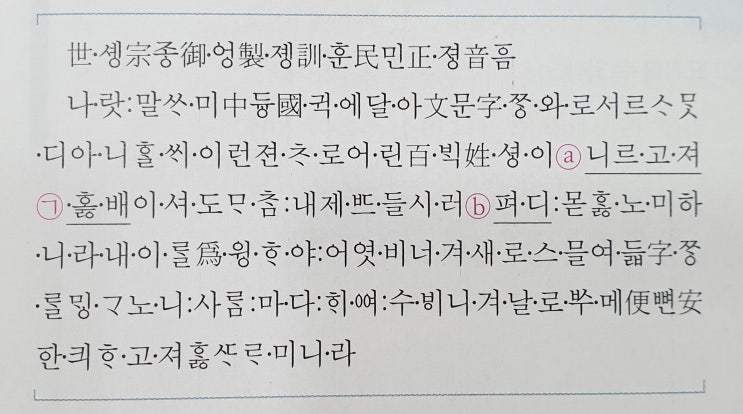 世·솅宗종御·엉製·졩訓·훈民민正·졍音ᅙᅳᆷ
나·랏:말ᄊᆞ·미中듕國·귁·에달·아文문字·ᄍᆞᆼ·와·로서르ᄉᆞᄆᆞᆺ
·디아·니ᄒᆞᆯ·ᄊᆡ·이런젼·ᄎᆞ·로어·린百·ᄇᆡᆨ姓·셩·이ⓐ니르·고·져
㉠·ᄒᆞᇙ·배이·셔·도ᄆᆞ·ᄎᆞᆷ:내제·ᄠᅳ·들시·러ⓑ펴·디:몯ᄒᆞᇙ·노·미하
·니·라·내·이·ᄅᆞᆯ爲·윙·ᄒᆞ·야:어엿·비너·겨·새·로·스·믈여·듧字·ᄍᆞᆼ
·ᄅᆞᆯᄆᆡᇰ·ᄀᆞ노·니:사ᄅᆞᆷ:마·다:ᄒᆡ·ᅇᅧ:수·ᄫᅵ니·겨·날·로·ᄡᅮ·메便뼌安
한·킈ᄒᆞ·고·져ᄒᆞᇙᄯᆞᄅᆞ·미니·라